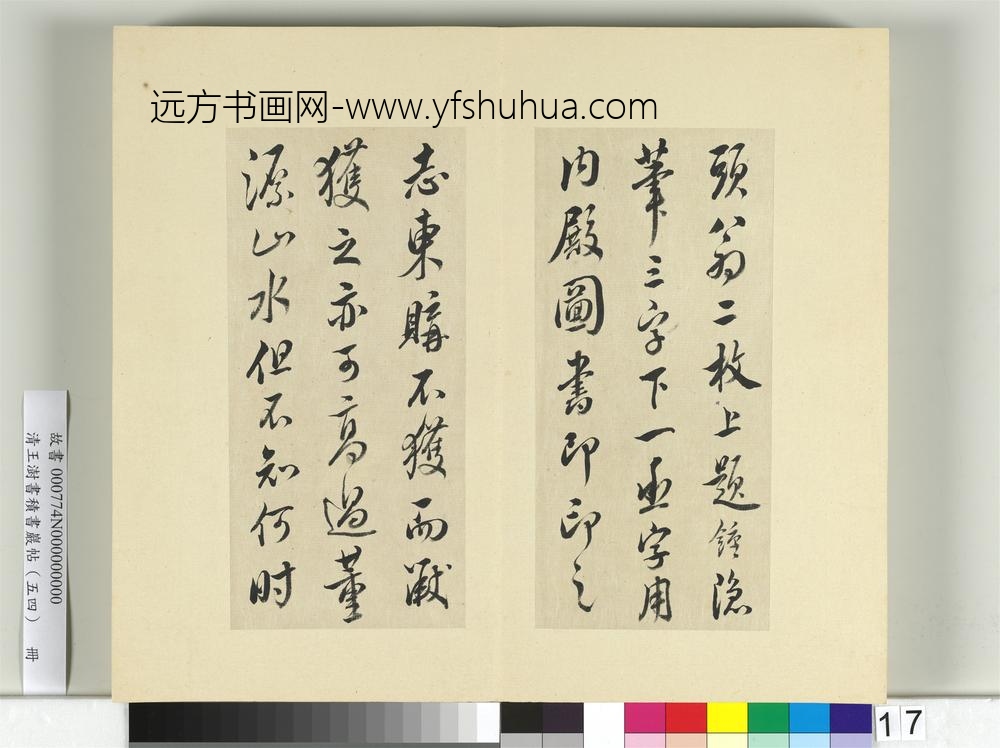 远方书画网-www.yfshuhua.com
頭公翁二枚上題鍾隐
筆三字下一丞字用
内殿圖書印印之
志東購不獲而獻
獲之亦可高過董
源山水但不知何时
故書 000774N000000000
清王澍書積書巖帖(五四) 冊
17